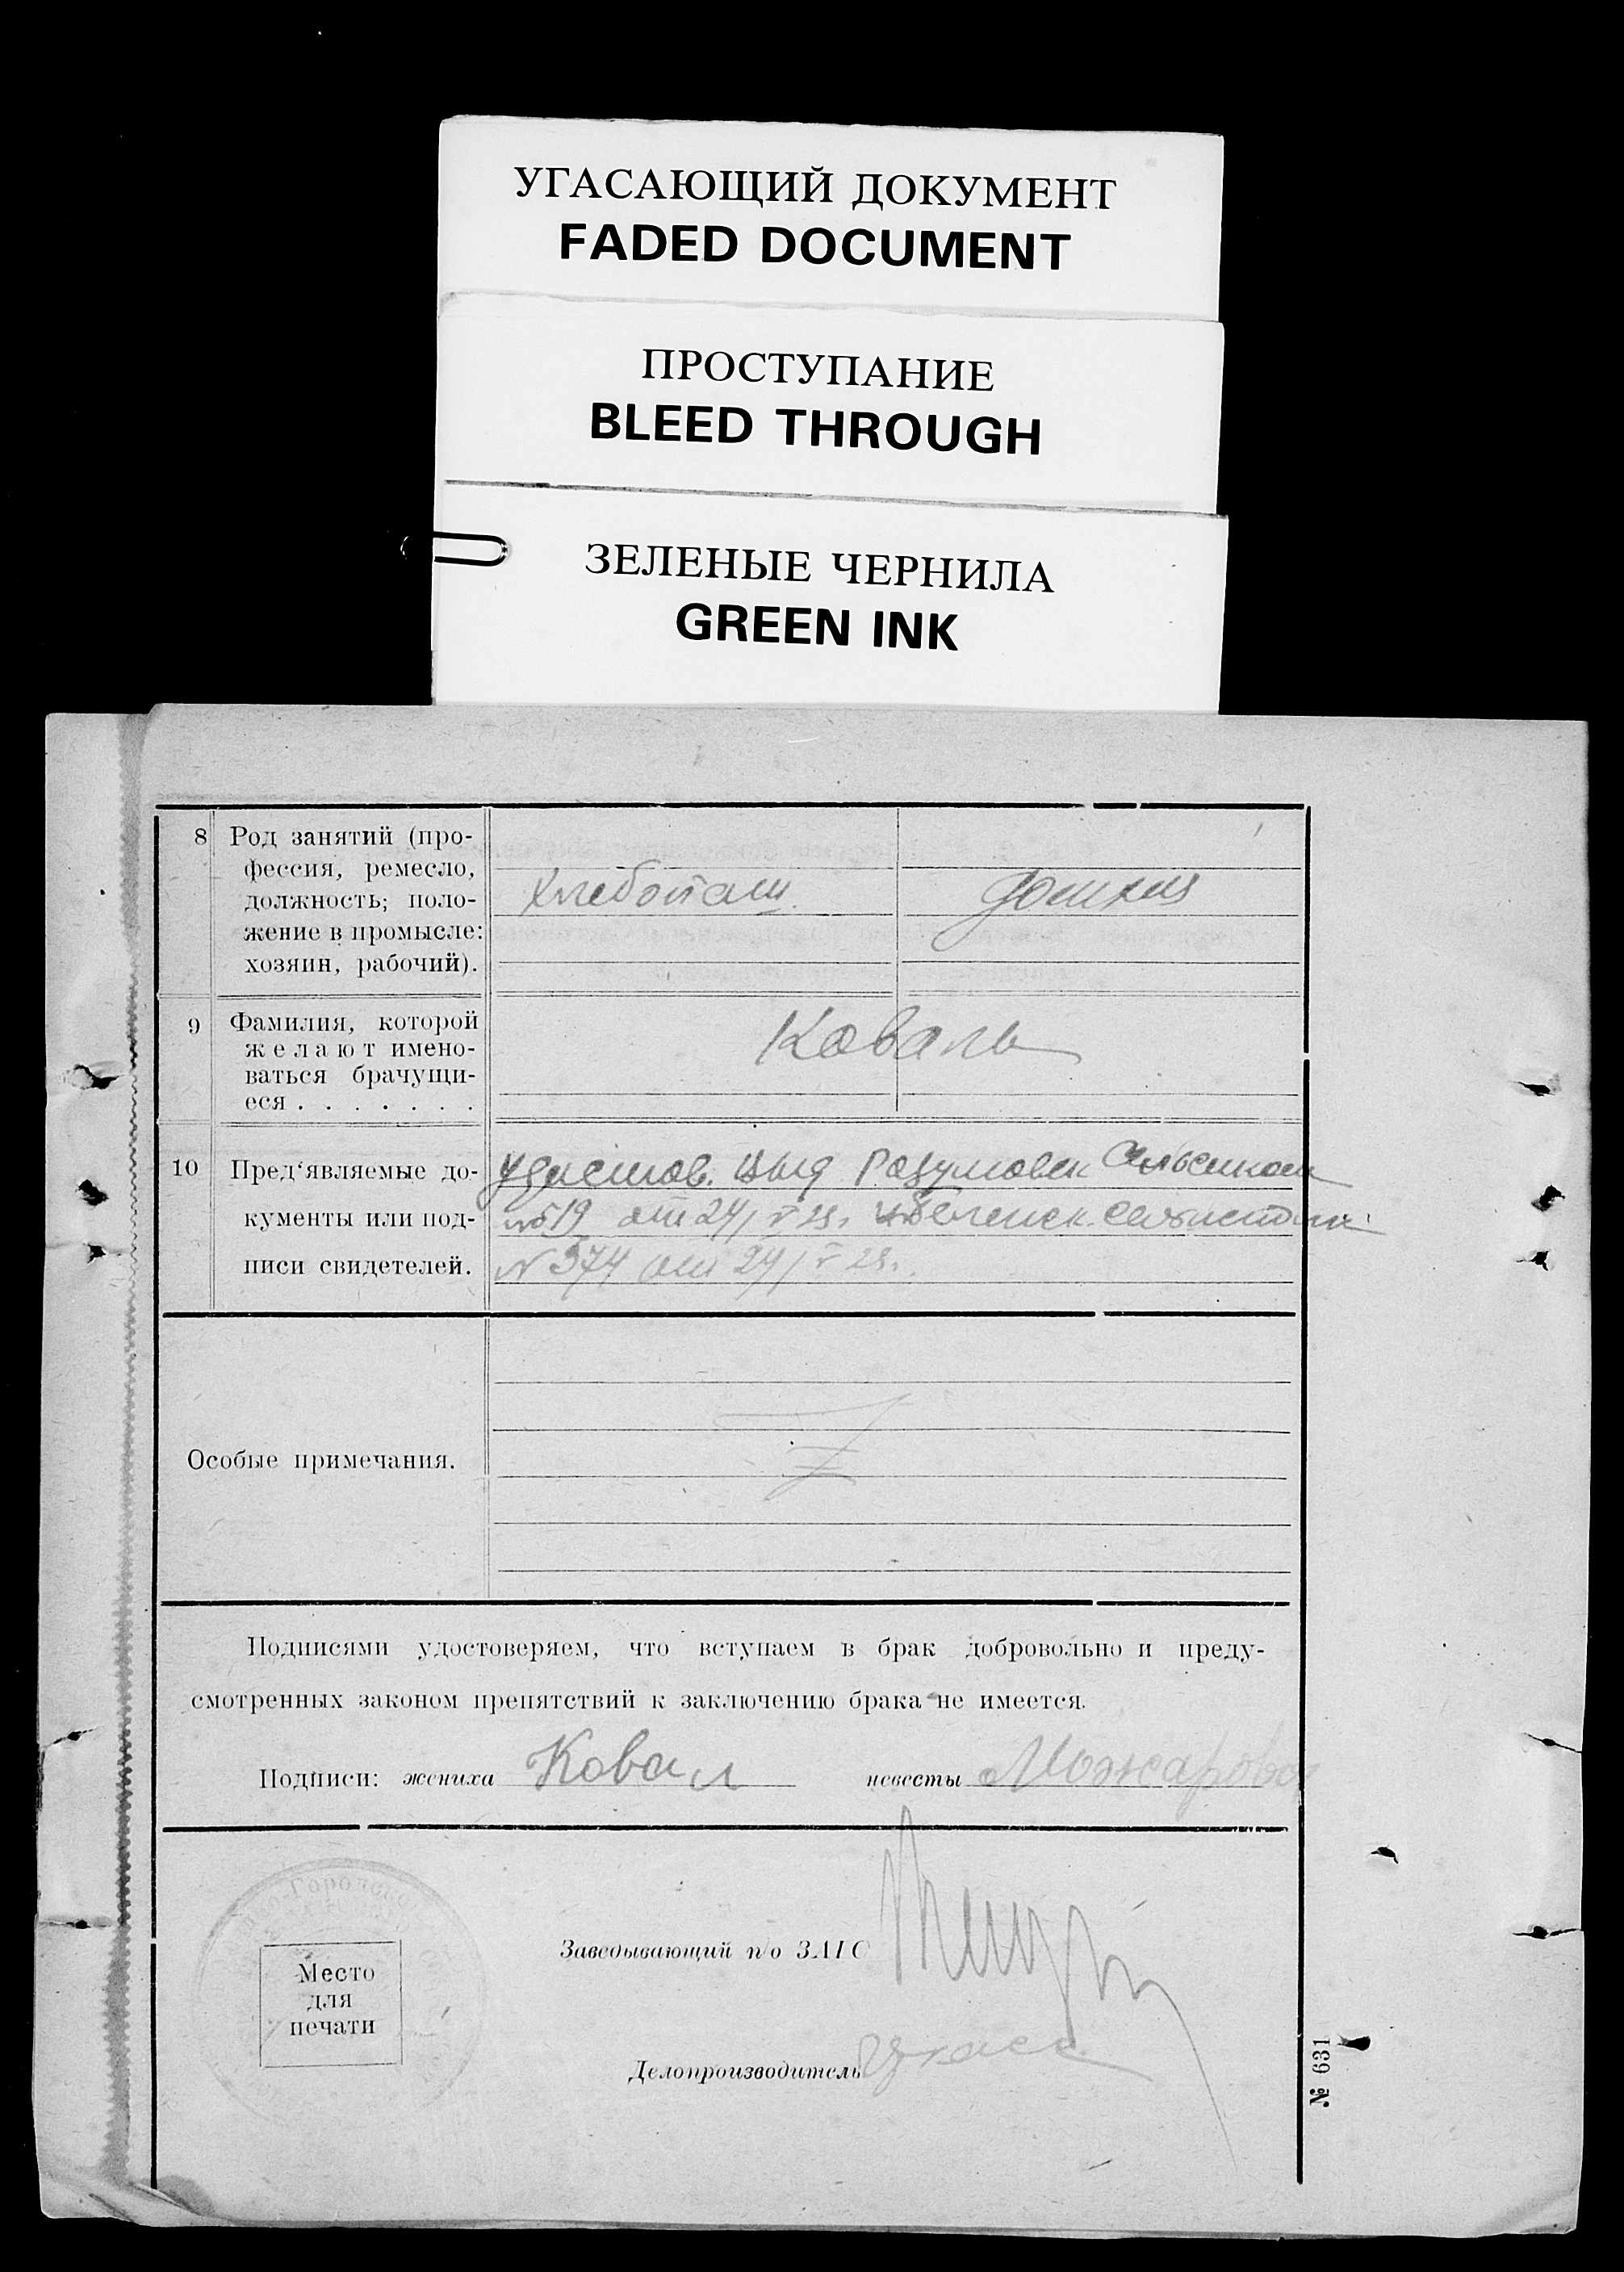 УГАСАЮЩИЙ ДОКУМЕНТ
FADED DOCUMENT
ПРОСТУПАНИЕ
BLEED THROUGH
ЗЕЛЕНЫЕ ЧЕРНИЛА
GREEN INK
8 Род занятий (про-
фессия, ремесло,
должность; поло-
жение в промысле:
хозяин, рабочий).
Хлебопаш. домхоз
9 Фамилия, которой
желают имено-
ваться брачущи-
еся . . . . . . .
Коваль
10 Пред'являемые до-
кументы или под-
писи свидетелей.
Удостов. выд Разумовск Сельсиком
№ 19 от 24/V 23.
№ 374 от 24/V 23.
Особые примечания.
Подписями удостоверяем, что вступаем в брак добровольно и преду-
смотренных законом препятствий к заключению брака не имеется.
Подписи: жениха Ковал невесты Можарова
Заведывающий п/о ЗАГС
Место
для
печати
Делопроизводитель
№ 631